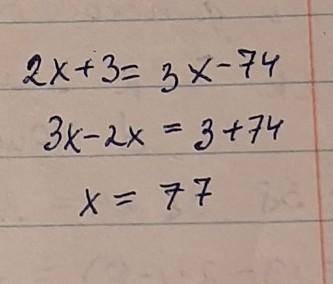 2x+3=3x-74
3x-2x=3+74
x=77